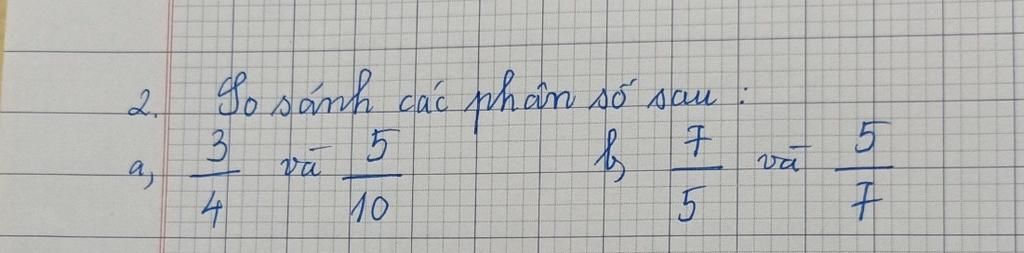 2. So sánh các phân số sau :
a, 3/4 và 5/10 b, 7/5 và 5/7